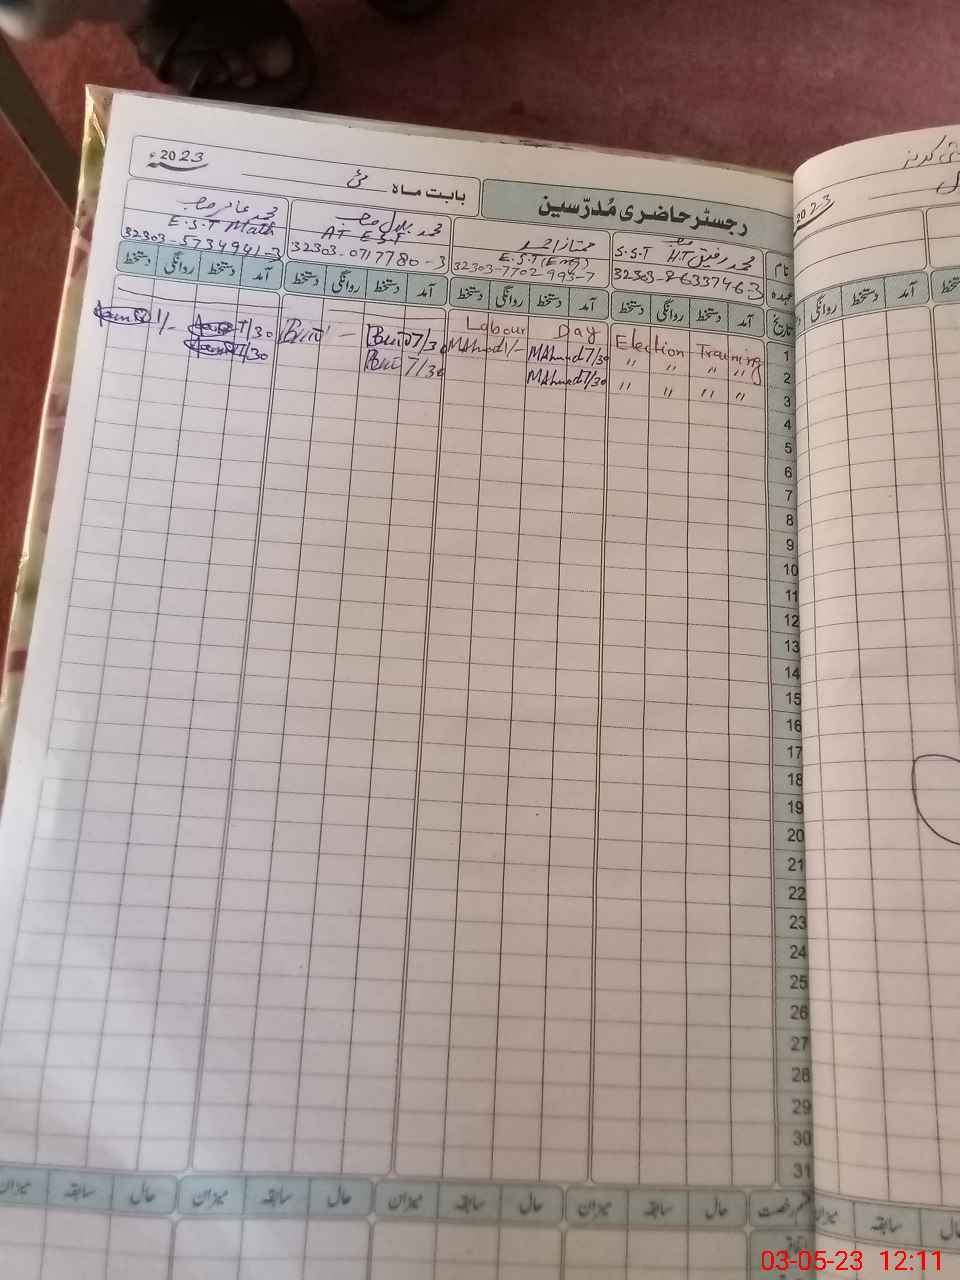 رجسٹر حاضری مُدرّسین
بابت ماہ مئی
2023ء
نام
محمد رفیق صاحب
ممتاز احمد
محمد بلال صاحب
محمد عامر صاحب
عہدہ
S.S.T H.T
E.S.T (Eng)
AT E.S.T
E.S.T Math
32303-8633746-3
32303-7702993-7
32303-0717780-3
32303-5734941-3
تاریخ
آمد دستخط روانگی دستخط آمد دستخط روانگی دستخط آمد دستخط روانگی دستخط آمد دستخط روانگی دستخط
1 Labour Day
Election Training
2 " " " "
MAhmad 7/30 MAhmad 1/-
7/30
7/30 1/-
3 " " " "
MAhmad 7/30
7/30
7/30
4
5
6
7
8
9
10
11
12
13
14
15
16
17
18
19
20
21
22
23
24
25
26
27
28
29
30
31
قسم رخصت حال سابقہ میزان حال سابقہ میزان حال سابقہ میزان حال سابقہ میزان
2023
آمد دستخط روانگی
سابقہ میزان
03-05-23 12:11